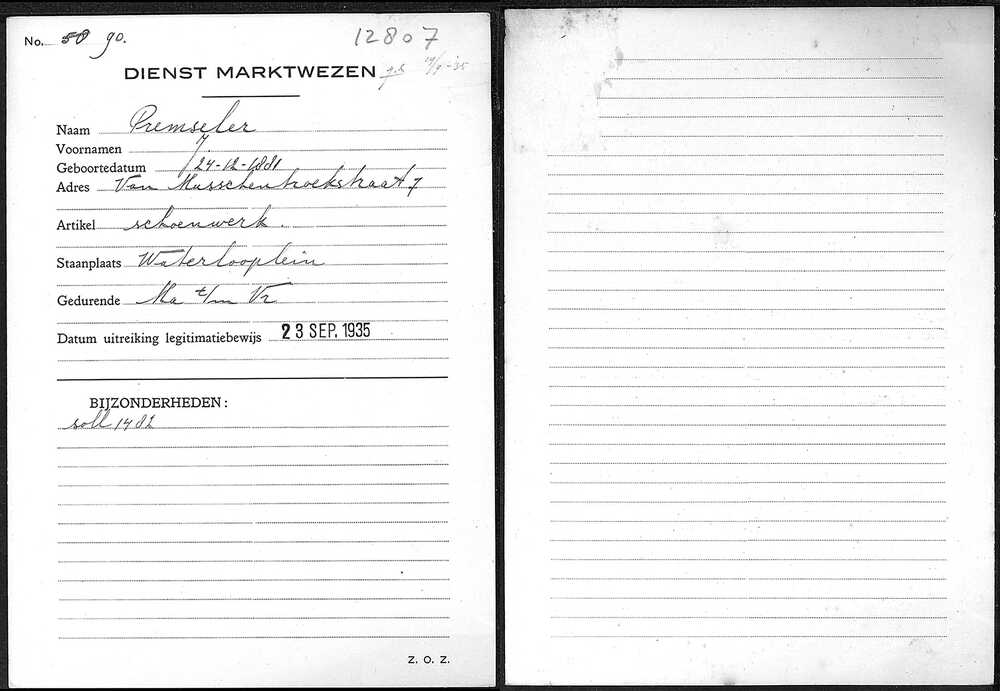 No. 50 90. 12807
DIENST MARKTWEZEN
Naam Premseler
Voornamen J.
Geboortedatum 24-12-1881
Adres Van Musschenbroekstraat 7
Artikel schoenwerk.
Staanplaats Waterlooplein
Gedurende Ma t/m Vr
Datum uitreiking legitimatiebewijs 23 SEP. 1935
BIJZONDERHEDEN:
soll 1482
Z. O. Z.